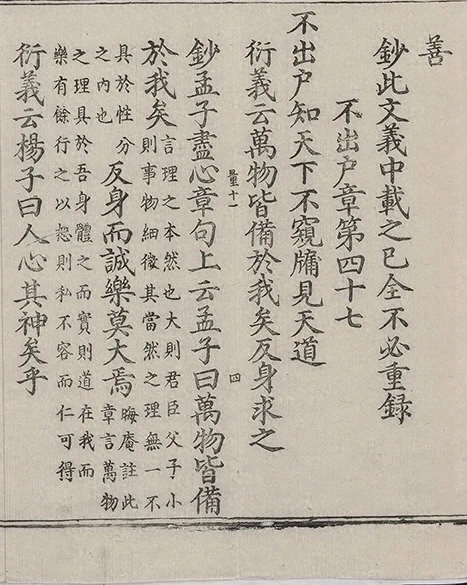 善
鈔此文義中載之已全不必重録
不出户章第四十七
不出户知天下不窺牖見天道
衍義云萬物皆備於我矣反身求之
量十一
四
鈔孟子盡心章句上云孟子曰萬物皆備
於我矣言理之本然也大則君臣父子小
則事物細微其當然之理無一不
具於性分
之内也
反身而誠樂莫大焉晦庵註此
章言萬物
之理具於吾身體之而實則道在我而
樂有餘行之以恕則私不容而仁可得
衍義云楊子曰人心其神矣乎